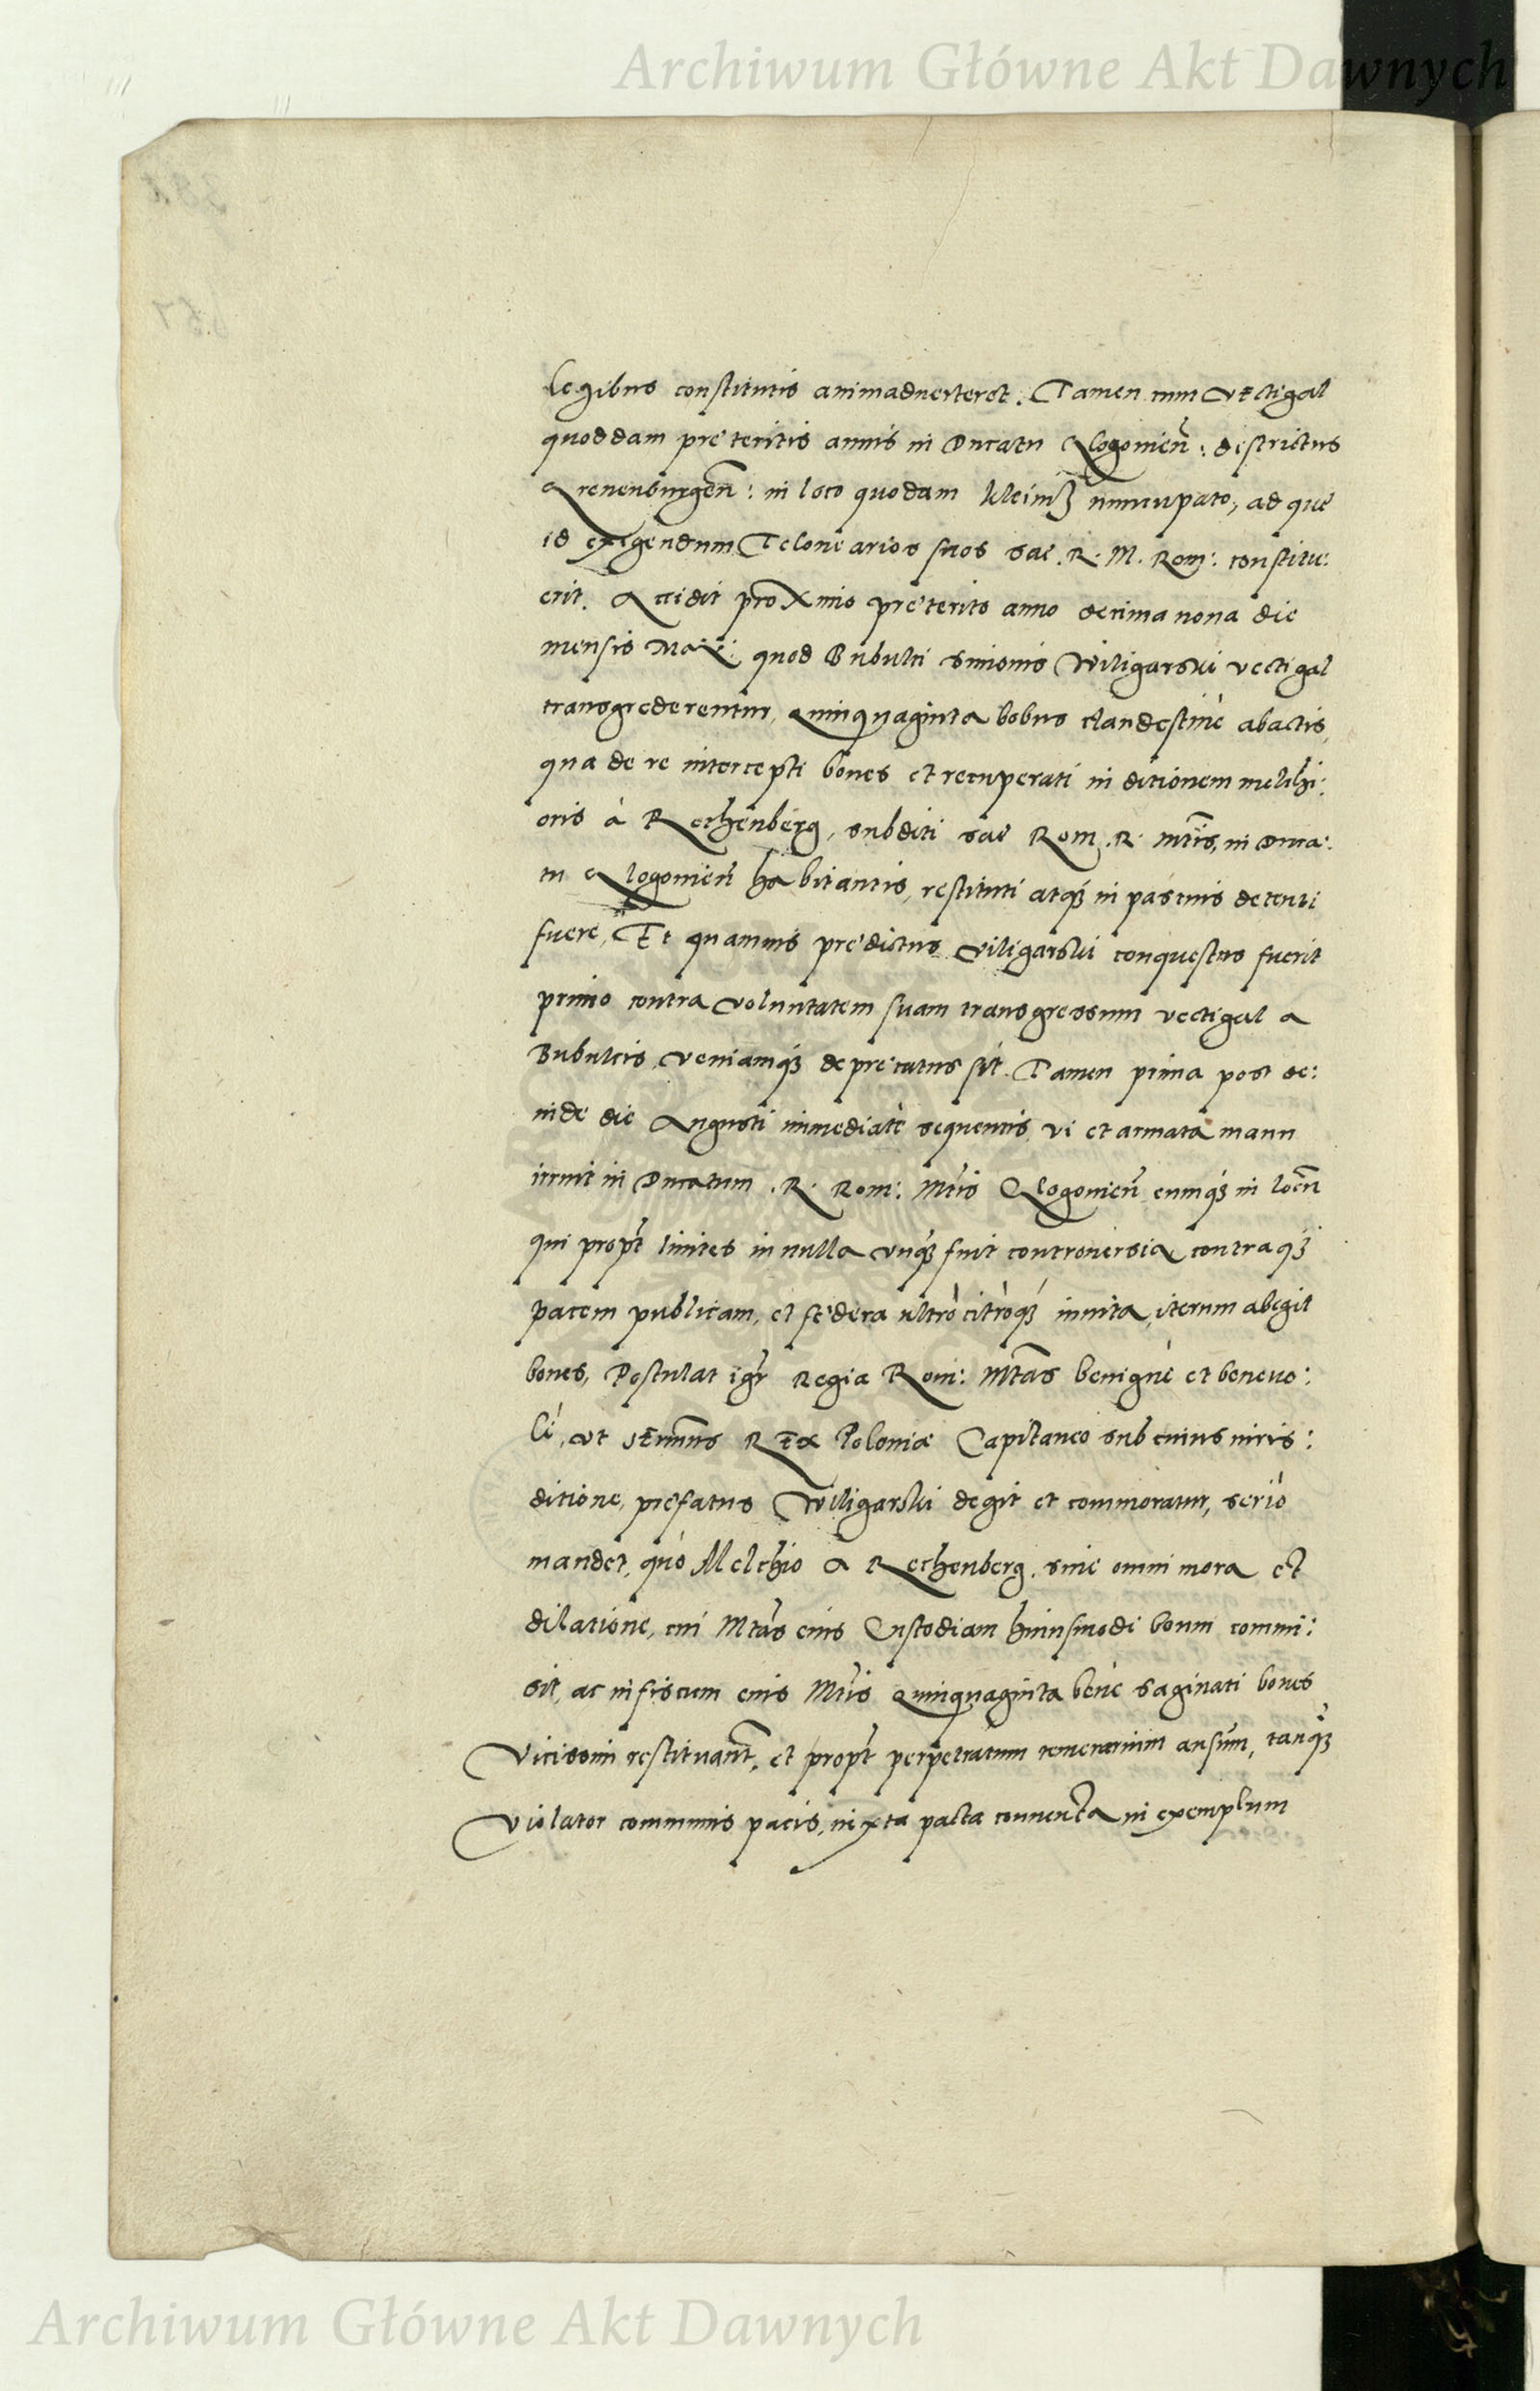 Archiwum Główne Akt Dawnych
legibus constitutis animaduerteret. Tamen cum Vectigal
quoddam pręteritis annis in Ducatu Glogouien̄: districtus
Grenenburgen̄: in loco quodam Kleinitz nuncupato, ad quę
id exigendum Telonearios suos sac. R. M. Rom: constitu:
erit. Accidit proximo pręterito anno decima nona die
mensis Maij: quod Bubulci Simonis Wiligarski vectigal
transgrederentur, Quinquaginta bobus clandestinè abactis,
qua de re intercepti boues et recuperati in ditionem melchi:
oris à Rechenberg, subditi sac Rom. R. Mtis, in Duca:
tu Glogouien̄ habitantis, restituti atq3 in pascuis detenti
fuere, Et quamuis prędictus Viligarski conquestus fuerit
primo contra Voluntatem suam transgressum vectigal a
Bubulcis, Veniamq3 deprecatus sit. Tamen prima post de:
inde die Augusti immediatè sequentis, vi et armata manu
irruit in Ducatum. R. Rom: Mtis Glogouien̄ eumq3 in locū
qui propt̄ limites in nulla vnq3 fuit controuersia, contraq3
pacem publicam, et fędera ultrò citròq3 innita, iterum abegit
boues, Postulat igr̄ Regia Rom: Mtas benignè et beneuo:
lè, vt serm̄us Rex Poloniæ Capitaneo sub cuius iuris:
ditione, pręfatus Wiligarski degit et commoratur, seriò
mandet, quò Melchio a Rechenberg, sine omni mora et
dilatione, cui Mtas eius Custodiam huiusmodi boum commi:
sit, ac in fiscum eius Mtis Quinquaginta benè saginati boues
Vicissim restituant̄, et propt̄ perpetratum temerarium ausum, tanq3
Violator communis pacis, iuxta pacta conuenta in exemplum
Archiwum Główne Akt Dawnych